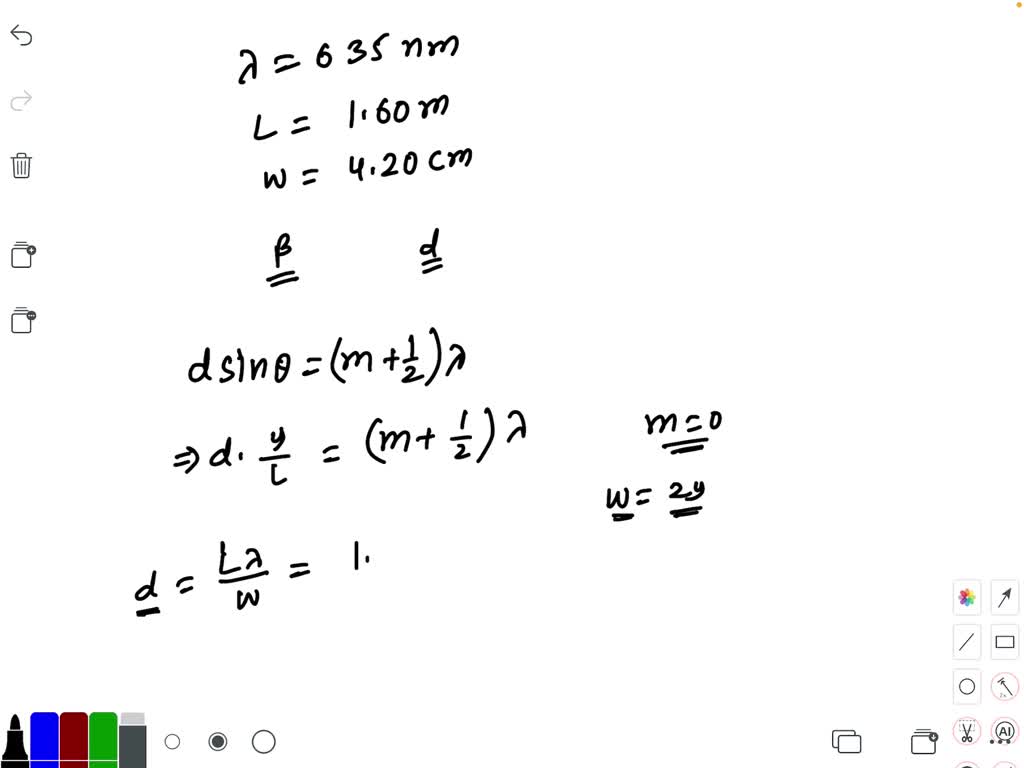 λ = 635 nm
L = 1.60 m
w = 4.20 cm
β d
d sinθ = (m + 1/2) λ
⇒ d. y/L = (m + 1/2) λ
m = 0
w = 2y
d = Lλ/w = 1.
AI